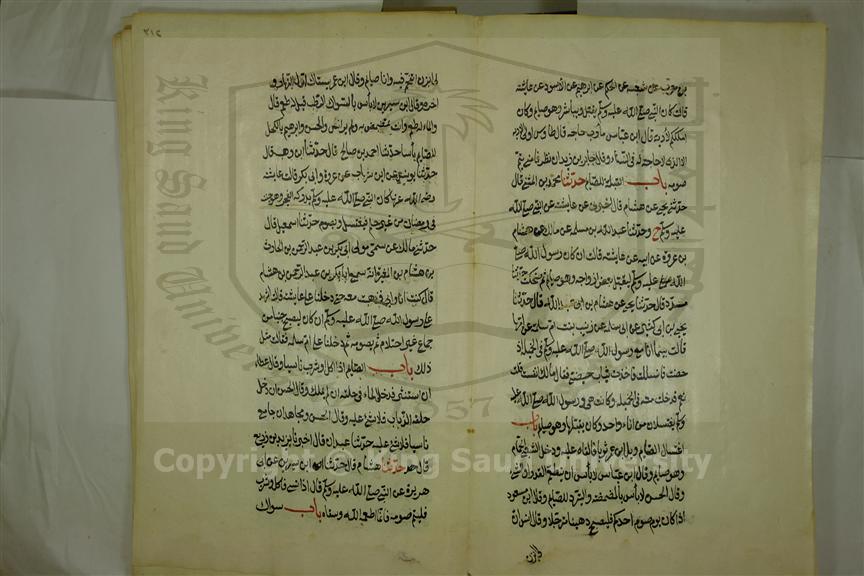 بن حرب عن شعبة عن الحكم عن ابرهيم عن الاسود عن عايشة
قالت كان النبي صلى الله عليه وسلم يقبل ويباشر وهو صايم وكان
املككم لاربه قال ابن عباس مارب حاجة قال طاوس اولى الاربة
الاحمق لا حاجة له في النساء وقال جابر بن زيد ان نظر فامنى يتم
صومه باب القبلة للصايم حدثنا محمد بن المثنى قال
حدثني يحيى عن هشام قال اخبرني عن عايشة عن النبي صلى الله
عليه وسلم ح وحدثنا عبد الله بن مسلمة عن مالك عن هشام
بن عروة عن ابيه عن عايشة قالت ان كان رسول الله
صلى الله عليه وسلم ليقبل بعض ازواجه وهو صايم ثم ضحكت حدثنا
مسدد قال حدثنا يحيى عن هشام بن ابي عبد الله قال حدثنا
يحيى بن ابي كثير عن ابي سلمة عن زينب بنت ام سلمة عن امها
قالت بينما انا مع رسول الله صلى الله عليه وسلم في الخميلة اذ
حضت فانسللت فاخذت ثياب حيضتي فقال مالك انفست قلت
نعم فدخلت معه في الخميلة وكانت هي ورسول الله صلى الله عليه
وسلم يغتسلان من اناء واحد وكان يقبلها وهو صايم باب
اغتسال الصايم وبل ابن عمر ثوبا فالقاه عليه ودخل الشعبي الحمام
وهو صايم وقال ابن عباس لا باس ان يتطعم القدر او الشيء
وقال الحسن لا باس بالمضمضة والتبرد للصايم وقال ابن مسعود
اذا كان يوم صوم احدكم فليصبح دهينا مترجلا وقال انس ان
٣١٢
لي ابزن اتقحم فيه وانا صايم وقال ابن عمر يستاك اول النهار و
اخره وقال ابن سيرين لا باس بالسواك الرطب قيل له طعم قال
والماء له طعم وانت تمضمض به ولم ير انس والحسن وابرهيم بالكحل
للصايم باسا حدثنا احمد بن صالح قال حدثنا ابن وهب قال
حدثنا يونس عن ابن شهاب عن عروة وابي بكر قالت عايشة
رضي الله عنها كان النبي صلى الله عليه وسلم يدركه الفجر
في رمضان من غير حلم فيغتسل ويصوم حدثنا اسمعيل قال
حدثني مالك عن سمي مولى ابي بكر بن عبد الرحمن بن الحارث
بن هشام بن المغيرة انه سمع ابا بكر بن عبد الرحمن بن هشام
قال كنت انا وابي فذهبت معه حتى دخلنا على عايشة قالت اشهد
على رسول الله صلى الله عليه وسلم ان كان ليصبح جنبا من
جماع غير احتلام ثم يصومه ثم دخلنا على ام سلمة فقالت مثل
ذلك باب الصايم اذا اكل وشرب ناسيا وقال عطاء
ان استنثر فدخل الماء في حلقه ان لم يملك وقال الحسن ان دخل
حلقه الذباب فلا شيء عليه وقال الحسن ومجاهد ان جامع
ناسيا فلا شيء عليه حدثنا عبدان قال اخبرنا يزيد بن زريع
قال حدثنا هشام قال حدثنا ابن سيرين عن ابي
هريرة عن النبي صلى الله عليه وسلم قال اذا نسي فاكل وشرب
فليتم صومه فانما اطعمه الله وسقاه باب سواك
King Saud University
1957
Copyright © King Saud University